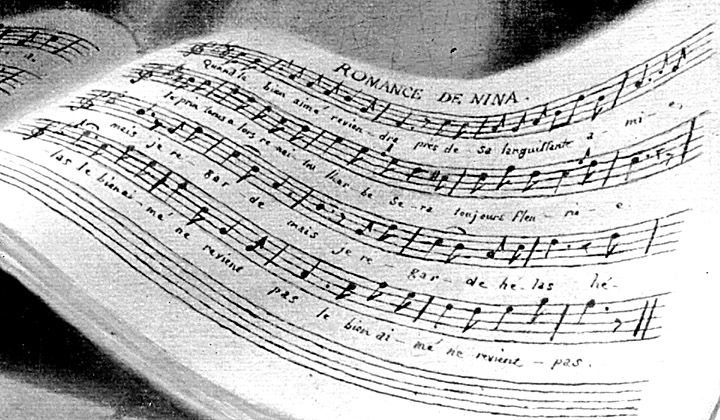 ROMANCE DE NINA.
Quand le bien aimé revien-dra près de sa languissante a-mi-e,
le prin tems a lors re nai-tra lhar be se-ra toujours fleu-ri-e
mais je re-gar de mais je re-gar-de hé-las hé-
las le bien ai-mé ne revient pas le bien ai-mé ne revient-pas.